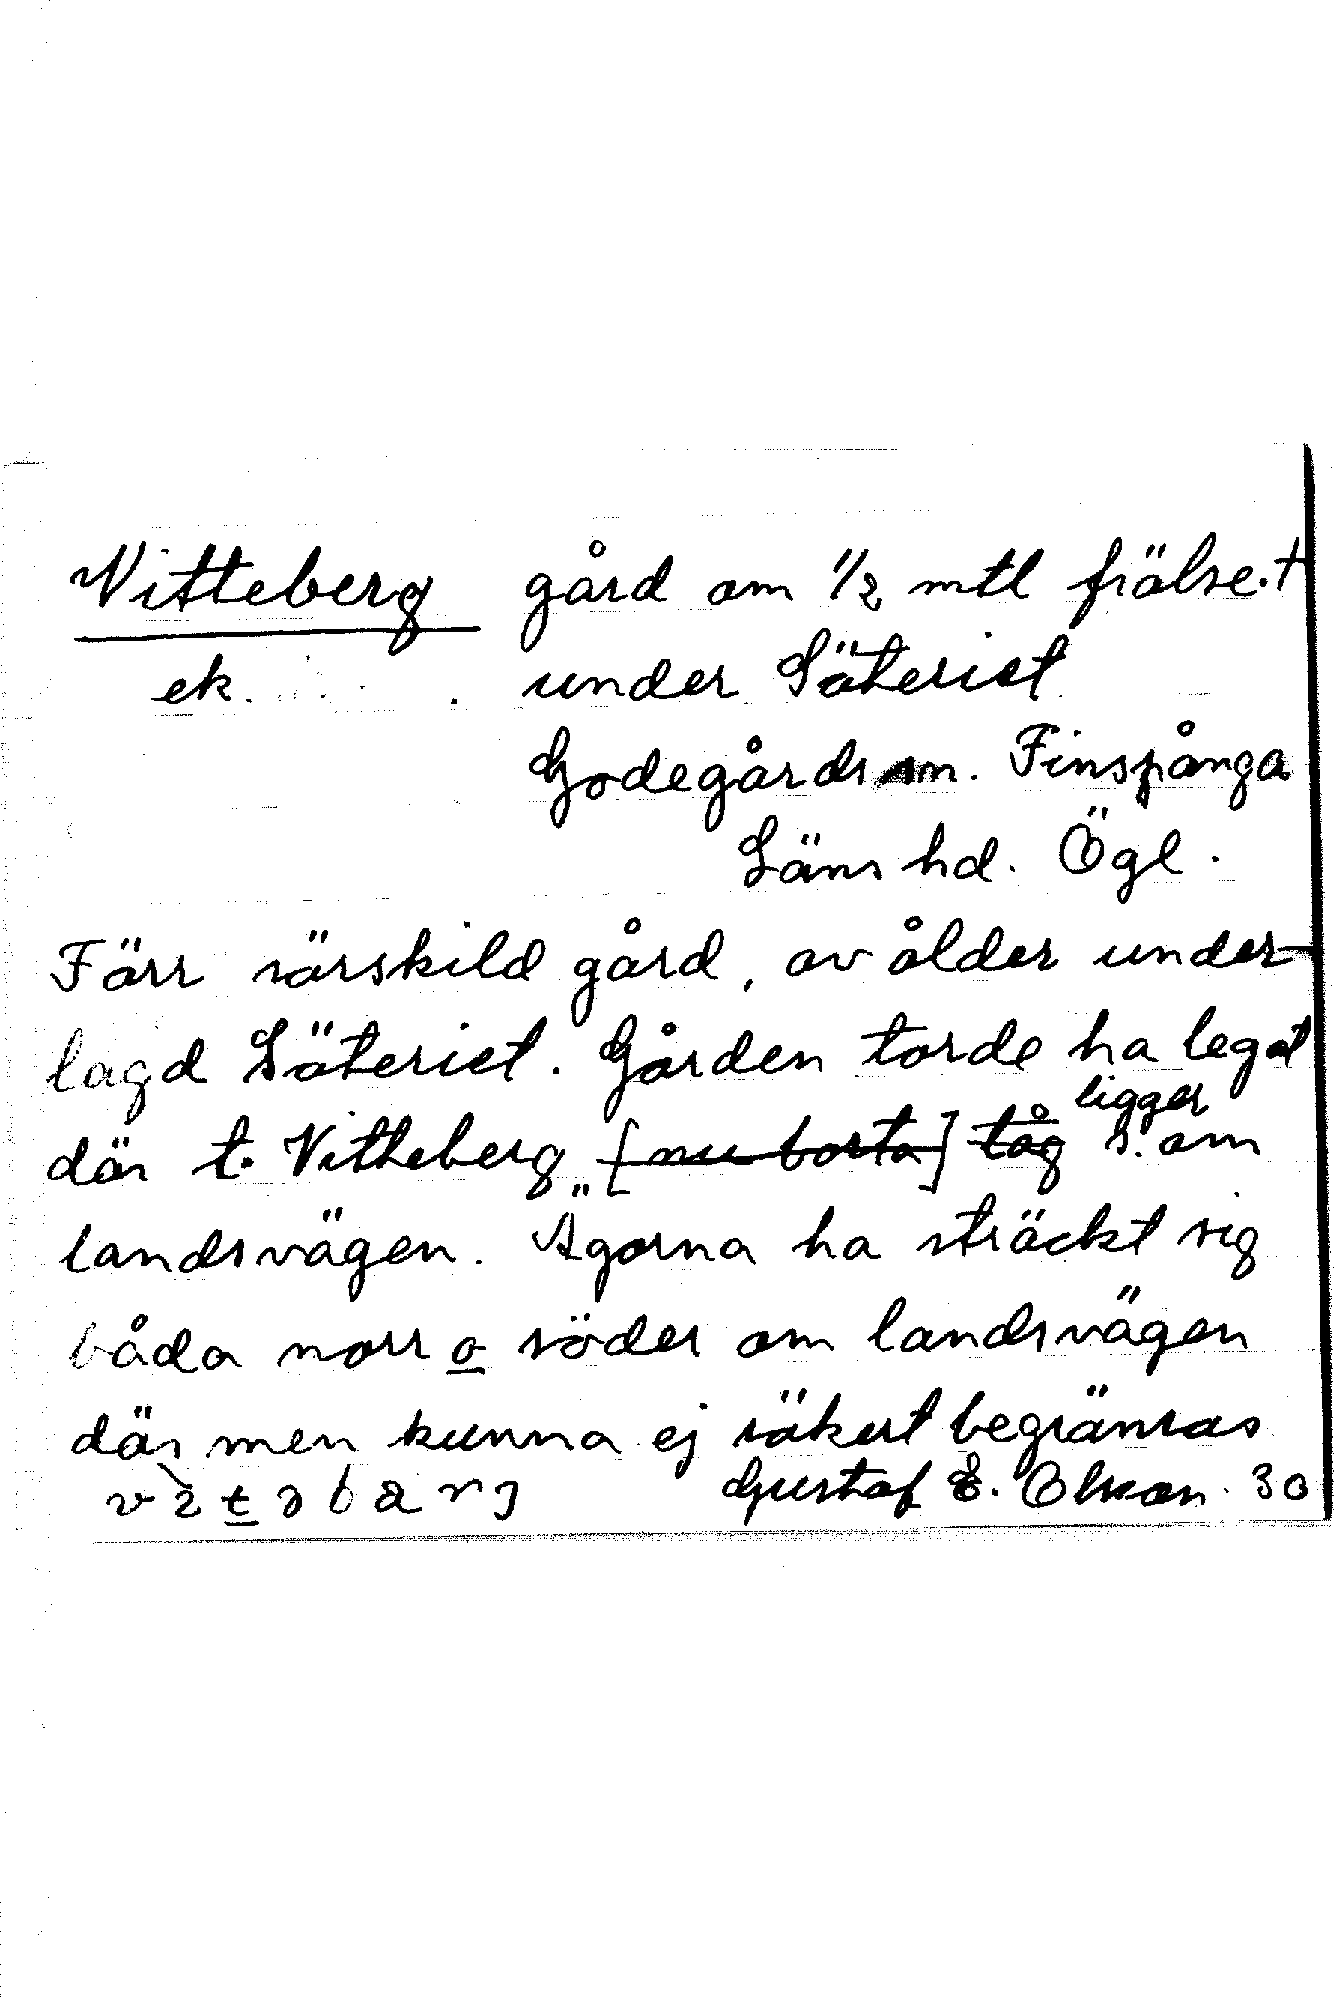 Vitteberg gård om 1/2 mtl frälse. †
ek. under Säteriet
Godegårds sn. Finspånga
Läns hd. Ögl.
Förr särskild gård, av ålder under-
lagd Säteriet. Gården torde ha legat
där t. Vitteberg [nu borta] låg ligger s. om
landsvägen. Ägorna ha sträckt sig
båda norr o söder om landsvägen
där men kunna ej säkert begränsas
Gustaf E. Olsson. 30